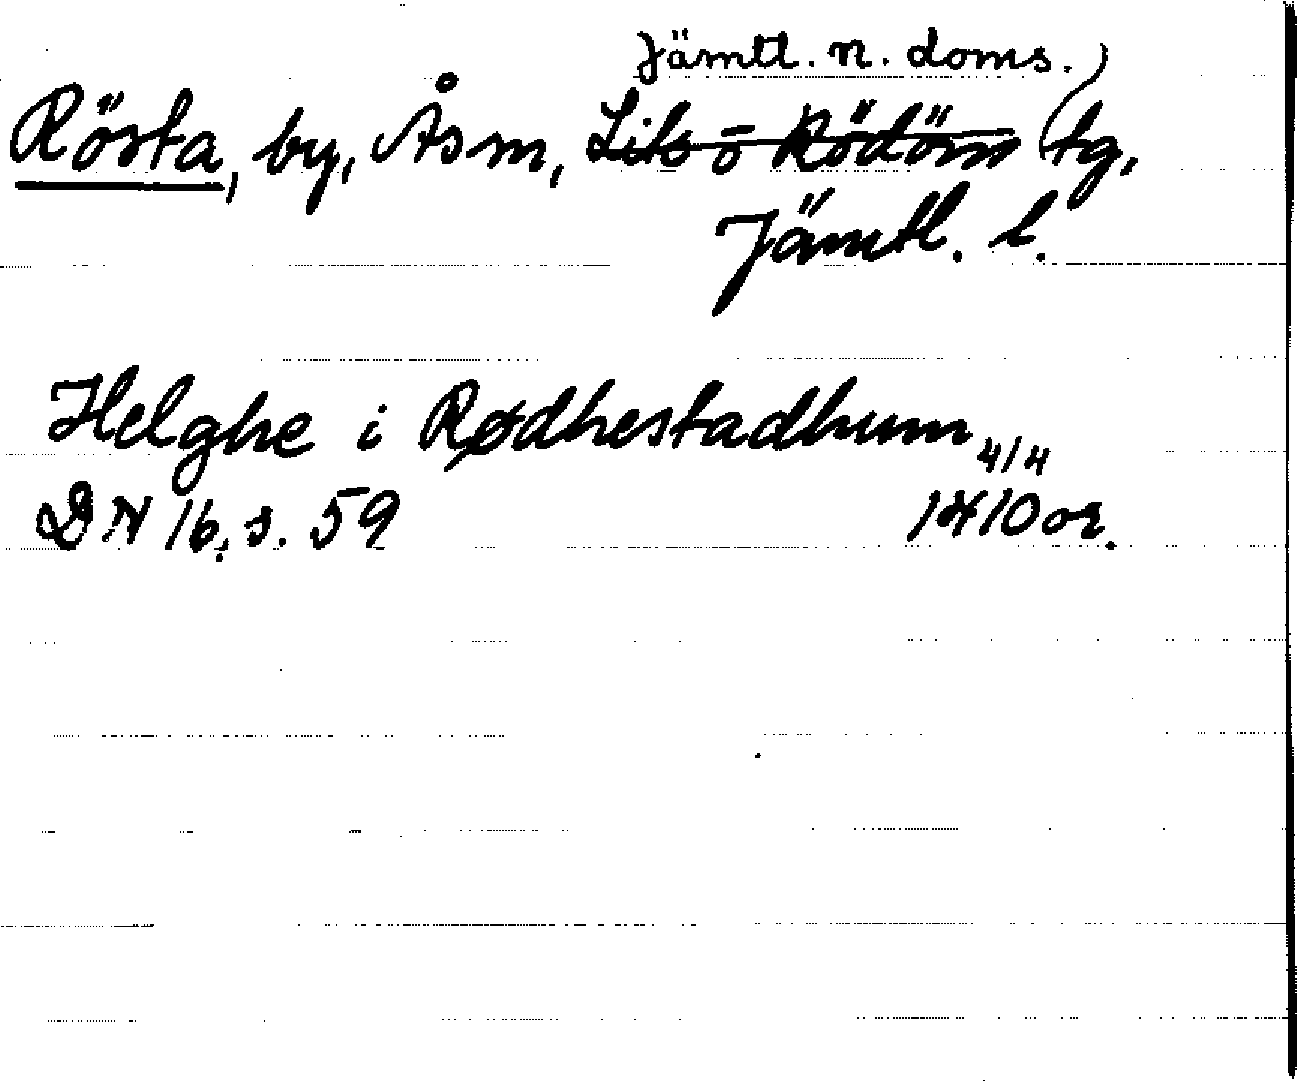 Jämtl. n. doms.
Rösta, by, Ås sn, Lits o Rödöns tg,
Jämtl. l.
Helghe i Rødhestadhum 4/4
DN 16, s. 59 1410 or.